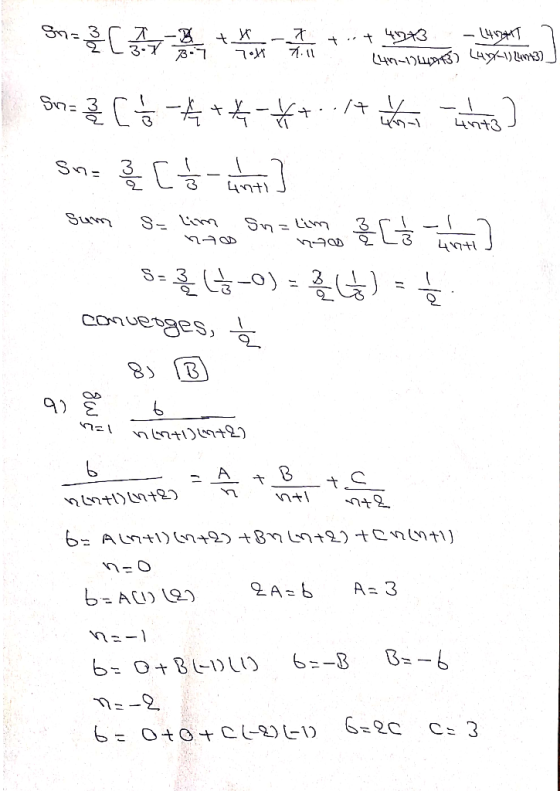 Sn = 3/2 [ 7/3·7 - 3/3·7 + 11/7·11 - 7/7·11 + ... + 4n+3/(4n-1)(4n+3) - (4n-1)/(4n-1)(4n+3) ]
Sn = 3/2 [ 1/3 - 1/7 + 1/7 - 1/11 + .../+ 1/4n-1 - 1/4n+3 ]
Sn = 3/2 [ 1/3 - 1/4n+1 ]
Sum S = lim n→∞ Sn = Lim n→∞ 3/2 [ 1/3 - 1/4n+1 ]
S = 3/2 (1/3 - 0) = 3/2 (1/3) = 1/2 .
converges, 1/2
8) B
9) ∞ Σ n=1 6/n(n+1)(n+2)
6/n(n+1)(n+2) = A/n + B/n+1 + C/n+2
6 = A(n+1)(n+2) + Bn(n+2) + Cn(n+1)
n=0
6 = A(1)(2) 2A=6 A=3
n=-1
6 = 0+B(-1)(1) 6=-B B=-6
n=-2
6 = 0+0+C(-2)(-1) 6=2C C=3